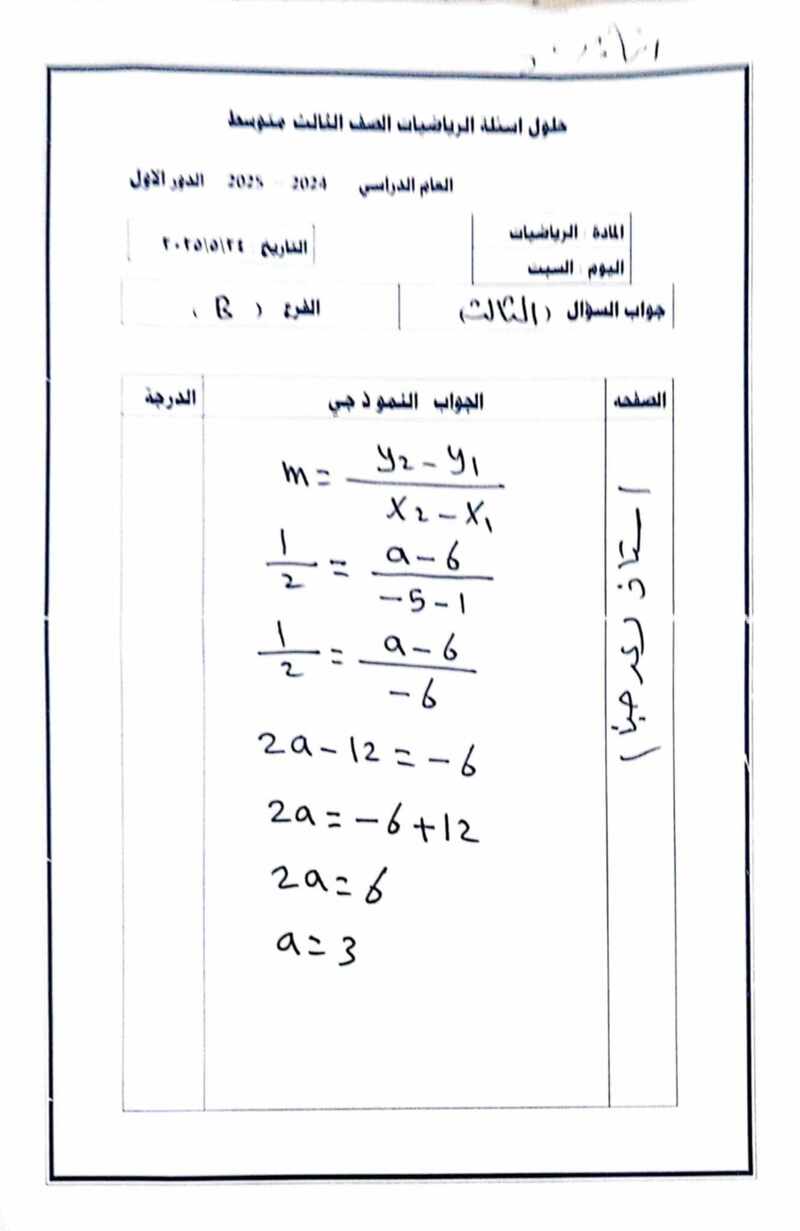 حلول اسئلة الرياضيات الصف الثالث متوسط
العام الدراسي 2024 - 2025 الدور الاول
المادة : الرياضيات
اليوم : السبت
التاريخ ٢٠٢٥/٥/٢٤
جواب السؤال (الثالث)
الفرع ( B )
الصفحه
الجواب النموذجي
الدرجة
m = \frac{y₂ - y₁}{x₂ - x₁}
\frac{1}{2} = \frac{a - 6}{-5 - 1}
\frac{1}{2} = \frac{a - 6}{-6}
2a - 12 = -6
2a = -6 + 12
2a = 6
a = 3
استاذ